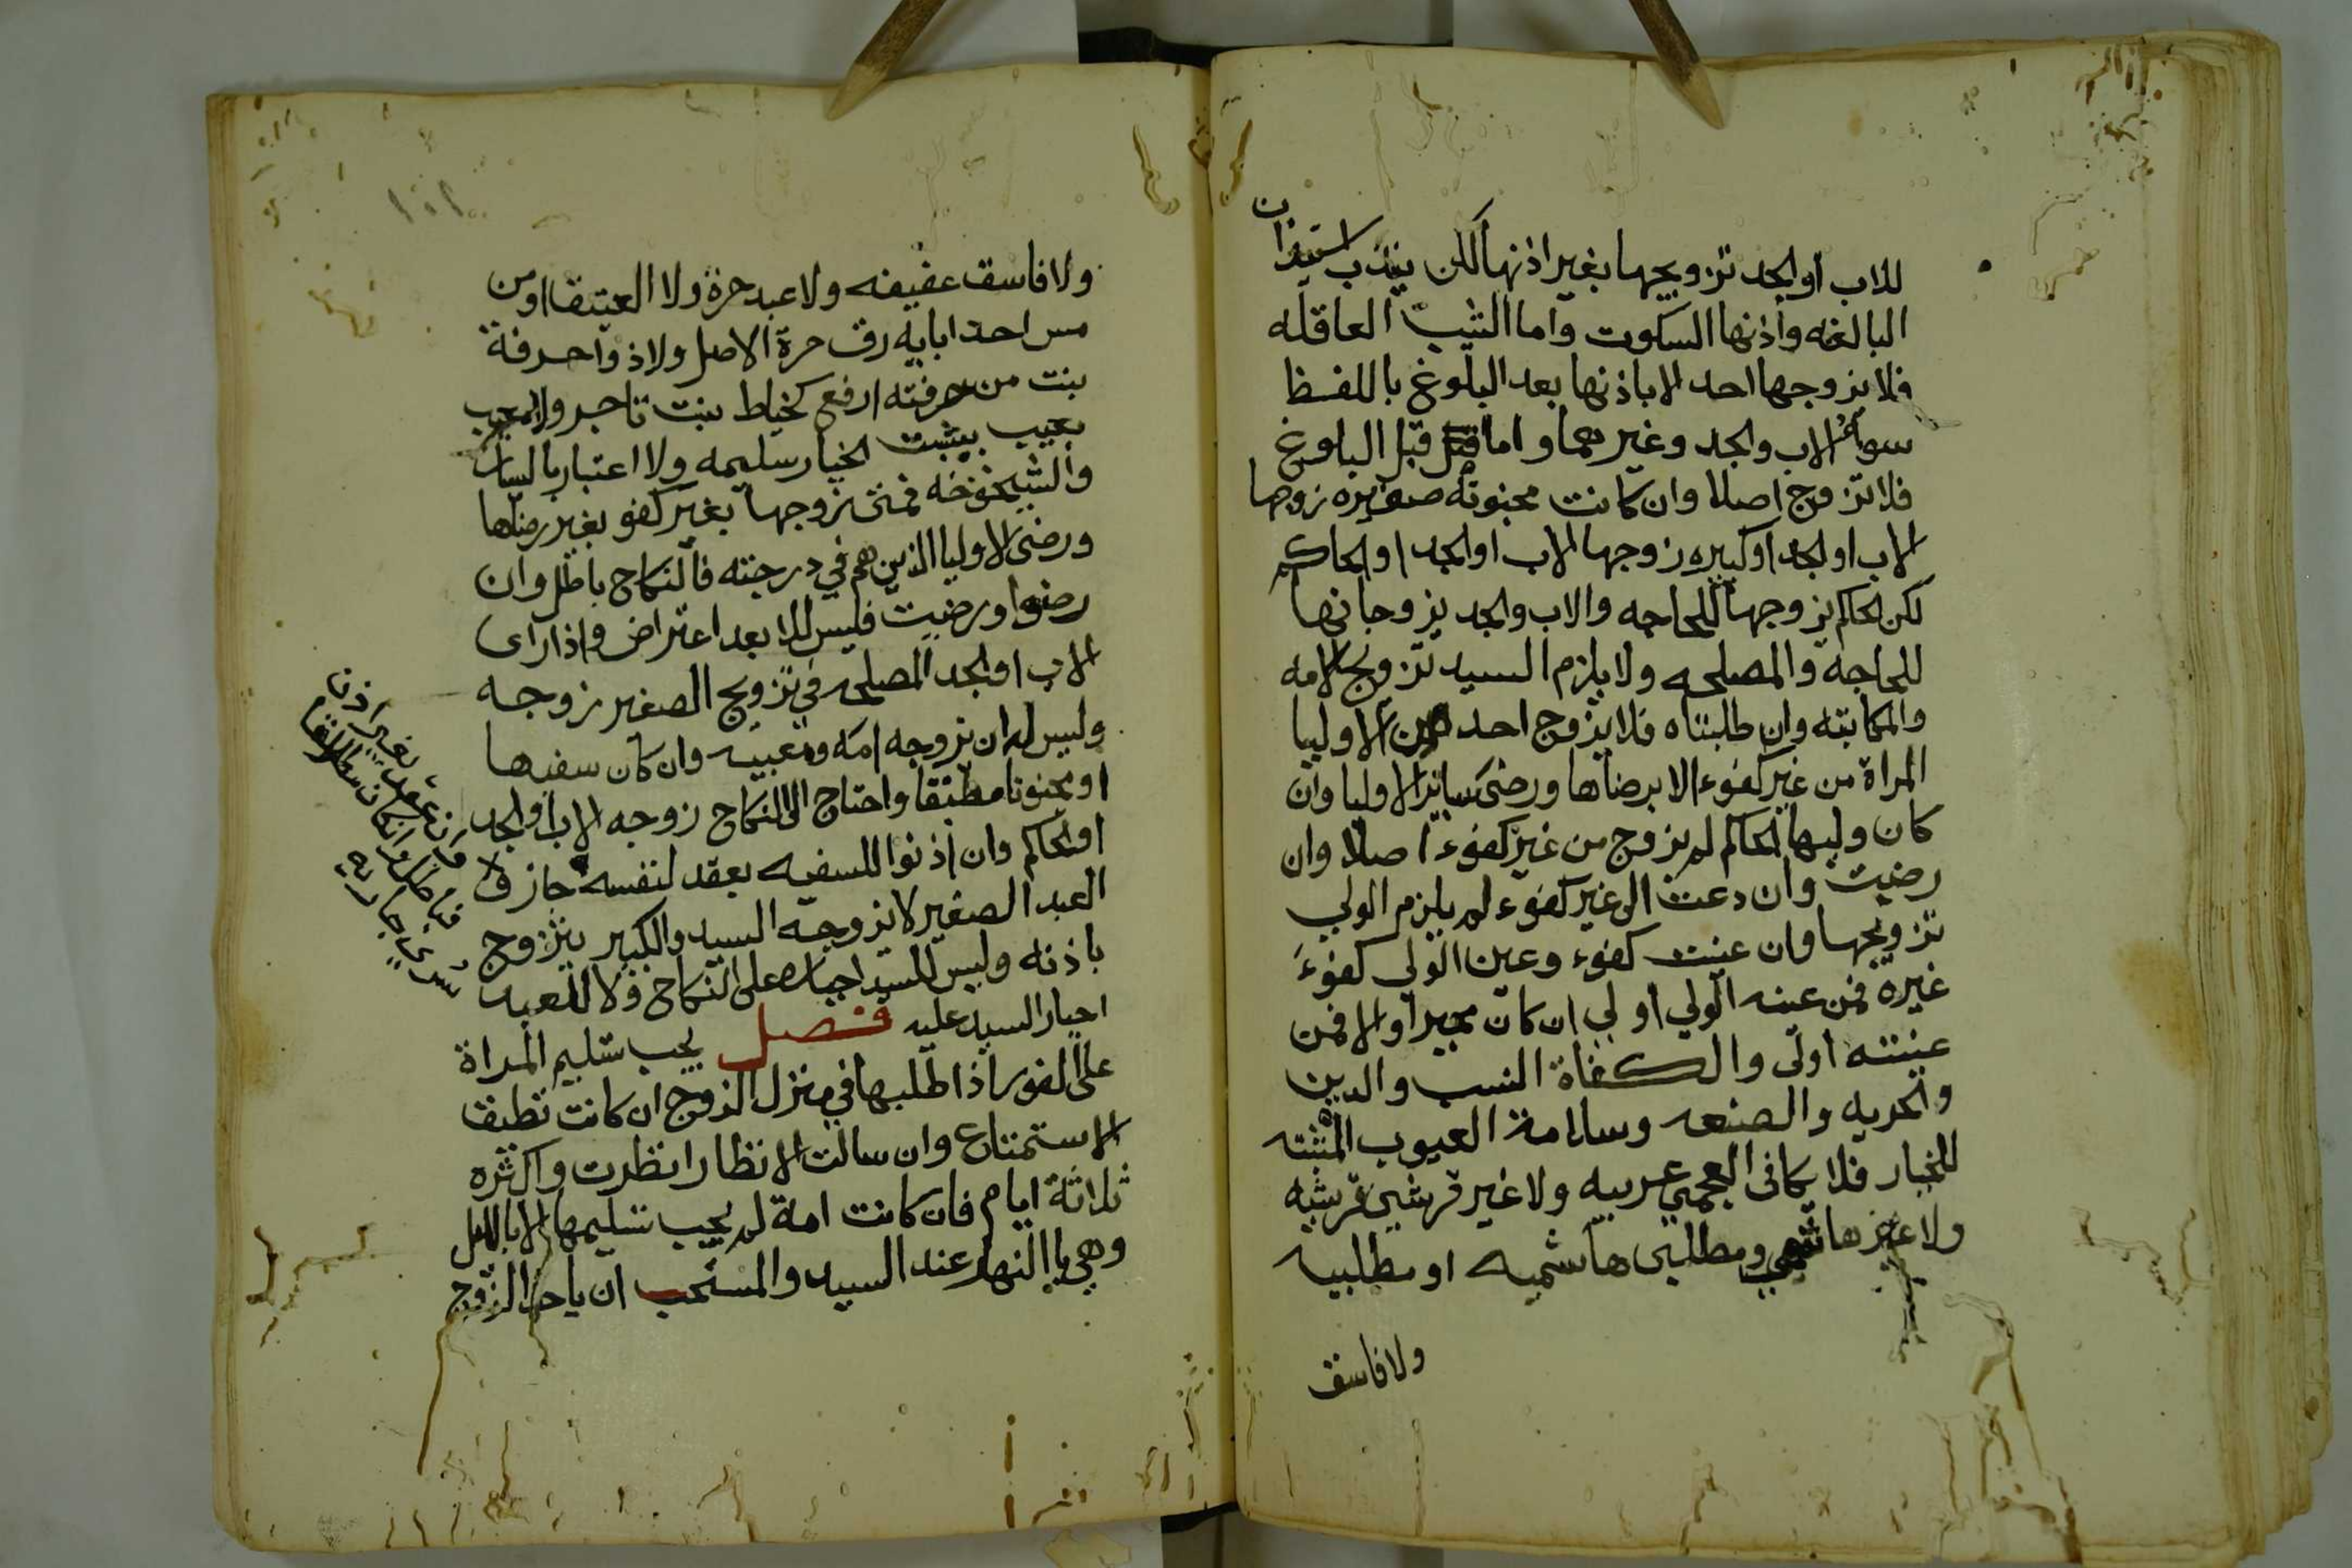 للاب او الجد تزويجها بغير اذنها لكن يندب استيذان
البالغه واذنها السكوت واما الثيب العاقله
فلا يزوجها احد الا باذنها بعد البلوغ باللفظ
سواء الاب والجد وغيرهما واما قبل البلوغ
فلا تزوج اصلا وان كانت مجنونة صغيره زوجها
الاب او الجد او كبيره زوجها الاب او الجد او الحاكم
لكن الحاكم يزوجها للحاجه والاب والجد يزوجانها
للحاجه والمصلحه ولا يلزم السيد تزويج الامه
والمكاتبه وان طلبتاه فلا يزوج احد من الاوليا
المراة من غير كفوء الا برضاها ورضى ساير الاوليا وان
كان وليها الحاكم لم يزوج من غير كفوء اصلا وان
رضيت وان دعت الى غير كفوء لم يلزم الولي
تزويجها وان عينت كفوء وعين الولي كفوء
غيره فمن عينه الولي اولي ان كان مجبرا والا فمن
عينته اولى والكفاة النسب والدين
والحريه والصنعه وسلامة العيوب المثبته
للخيار فلا يكافي العجمي عربيه ولا غير قرشي قرشيه
ولا غير هاشمي ومطلبي هاشميه او مطلبيه
ولا فاسق
ولا فاسق عفيفه ولا عبد حرة ولا العتيق او من
مس احد ابايه رق حرة الاصل ولا ذوا حرفة
بنت من حرفته ارفع كخياط بنت تاجر ولا معيب
بعيب يثبت الخيار سليمه ولا اعتبار باليسار
والشيخوخه فمتى زوجها بغير كفو بغير رضاها
ورضى الاوليا الذين هم في درجته فالنكاح باطل وان
رضوا ورضيت فليس للابعد اعتراض واذا راى
الاب او الجد المصلحه في تزويج الصغير زوجه
وليس له ان يزوجه امة ومعيبه وان كان سفيها
او مجنونا مطبقا واحتاج الى النكاح زوجه الاب او الجد
او الحاكم وان اذنوا للسفيه بعقد لنفسه جاز
العبد الصغير لا يزوجه السيد والكبير يتزوج
باذنه وليس للسيد اجباره على النكاح ولا للعبد
اجبار السيد عليه فصل يجب تسليم المراة
على الفور اذا طلبها في منزل الزوج ان كانت تطيق
الاستمتاع وان سالت الانظار انظرت واكثره
ثلاثة ايام فان كانت امة لم يجب تسليمها الا بالليل
وهي باالنهار عند السيد والمستحب ان ياخذ الزوج
وان عقد بغير اذن
فباطل وان كان مطلاقا
سري جاريه